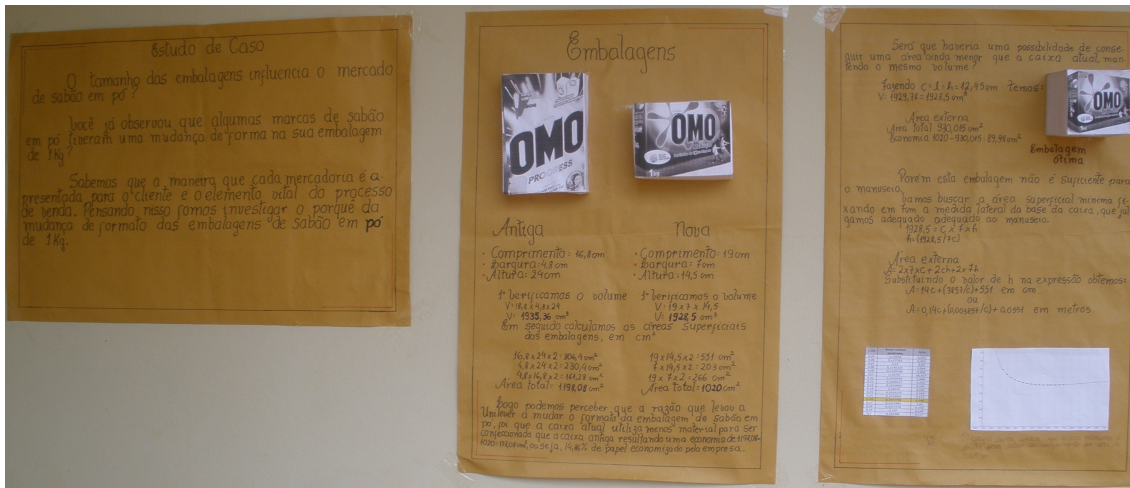 Estudo de Caso
O tamanho das embalagens influencia o mercado
de sabão em pó?
Você já observou que algumas marcas de sabão
em pó fizeram uma mudança de forma na sua embalagem
de 1kg?
Sabemos que a maneira que cada mercadoria é a-
presentada para o cliente e o elemento vital do processo
de venda. Pensando nisso fomos investigar o porquê da
mudança de formato das embalagens de sabão em pó
de 1Kg.
Embalagens
OMO
PROGRESS
OMO
Antiga
Nova
• Comprimento= 16,8cm
• Largura=4,8 cm
• Altura=24cm
• Comprimento=19cm
• Largura= 7cm
• Altura=14,5cm
1º Verificamos o volume
V= 16,8 x 4,8 x 24
V= 1935,36 cm³
1º Verificamos o volume
V= 19 x 7 x 14,5
V= 1928,5 cm³
Em seguida calculamos as áreas superficiais
das embalagens, em cm²
16,8 x 24 x 2= 806,4cm²
4,8 x 24 x 2= 230,4cm²
4,8 x 16,8 x 2= 161,28 cm²
Área total= 1198,08cm²
19 x 14,5 x 2= 551 cm²
7 x 14,5 x 2= 203 cm²
19 x 7 x 2= 266 cm²
Área total= 1020 cm²
Logo podemos perceber que a razão que levou a
Unilever a mudar o formato da embalagem de sabão em
pó, foi que a caixa atual utiliza menos material para ser
confeccionada que a caixa antiga resultando uma economia de 1198,08-
1020=178,08cm², ou seja, 14,86% de papel economizado pela empresa.
Será que haveria uma possibilidade de conse-
guir uma área ainda menor que a caixa atual, man-
tendo o mesmo volume?
Fazendo c=l=h=12,45cm temos:
V= 1929,78=1928,5cm³
Área externa
Área total 930,015cm²
Economia 1020-930,015=89,98cm²
OMO
Embalagem
ótima
Porém esta embalagem não é suficiente para
o manuseio.
Vamos buscar a área superficial mínima fi-
xando em 7cm a medida lateral da base da caixa, que jul-
gamos adequado adequado ao manuseio.
1928,5= c x 7 x h
h=(1928,5/7c)
Área externa
A= 2x7xc+2ch+2x7h
Substituindo o valor de h na expressão obtemos:
A=14c+(3857/c)+551 em cm
ou
A=0,14c+(0,003857/c)+0,0551 em metros